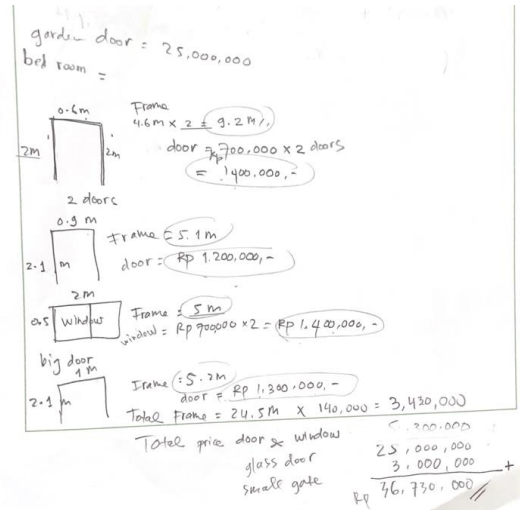 garden door = 25,000,000
bed room =
0.6m
2m
2m
2 doors
Frame
4.6m × 2 = 9.2 m
door = Rp 700.000 × 2 doors
= 1400.000,-
0.9 m
2.1 m
Frame = 5.1m
door = Rp 1.200.000,-
2m
0.5 Window
Frame = 5 m
window = Rp 700,000 × 2 = Rp 1.400,000,-
big door
1m
2.1 m
Frame = 5.2m
door = Rp 1,300.000,-
Total Frame = 24.5m × 140,000 = 3,430,000
Total price door & window 5.300.000
glass door 25,000,000
small gate 3,000,000 +
Rp 36,730,000